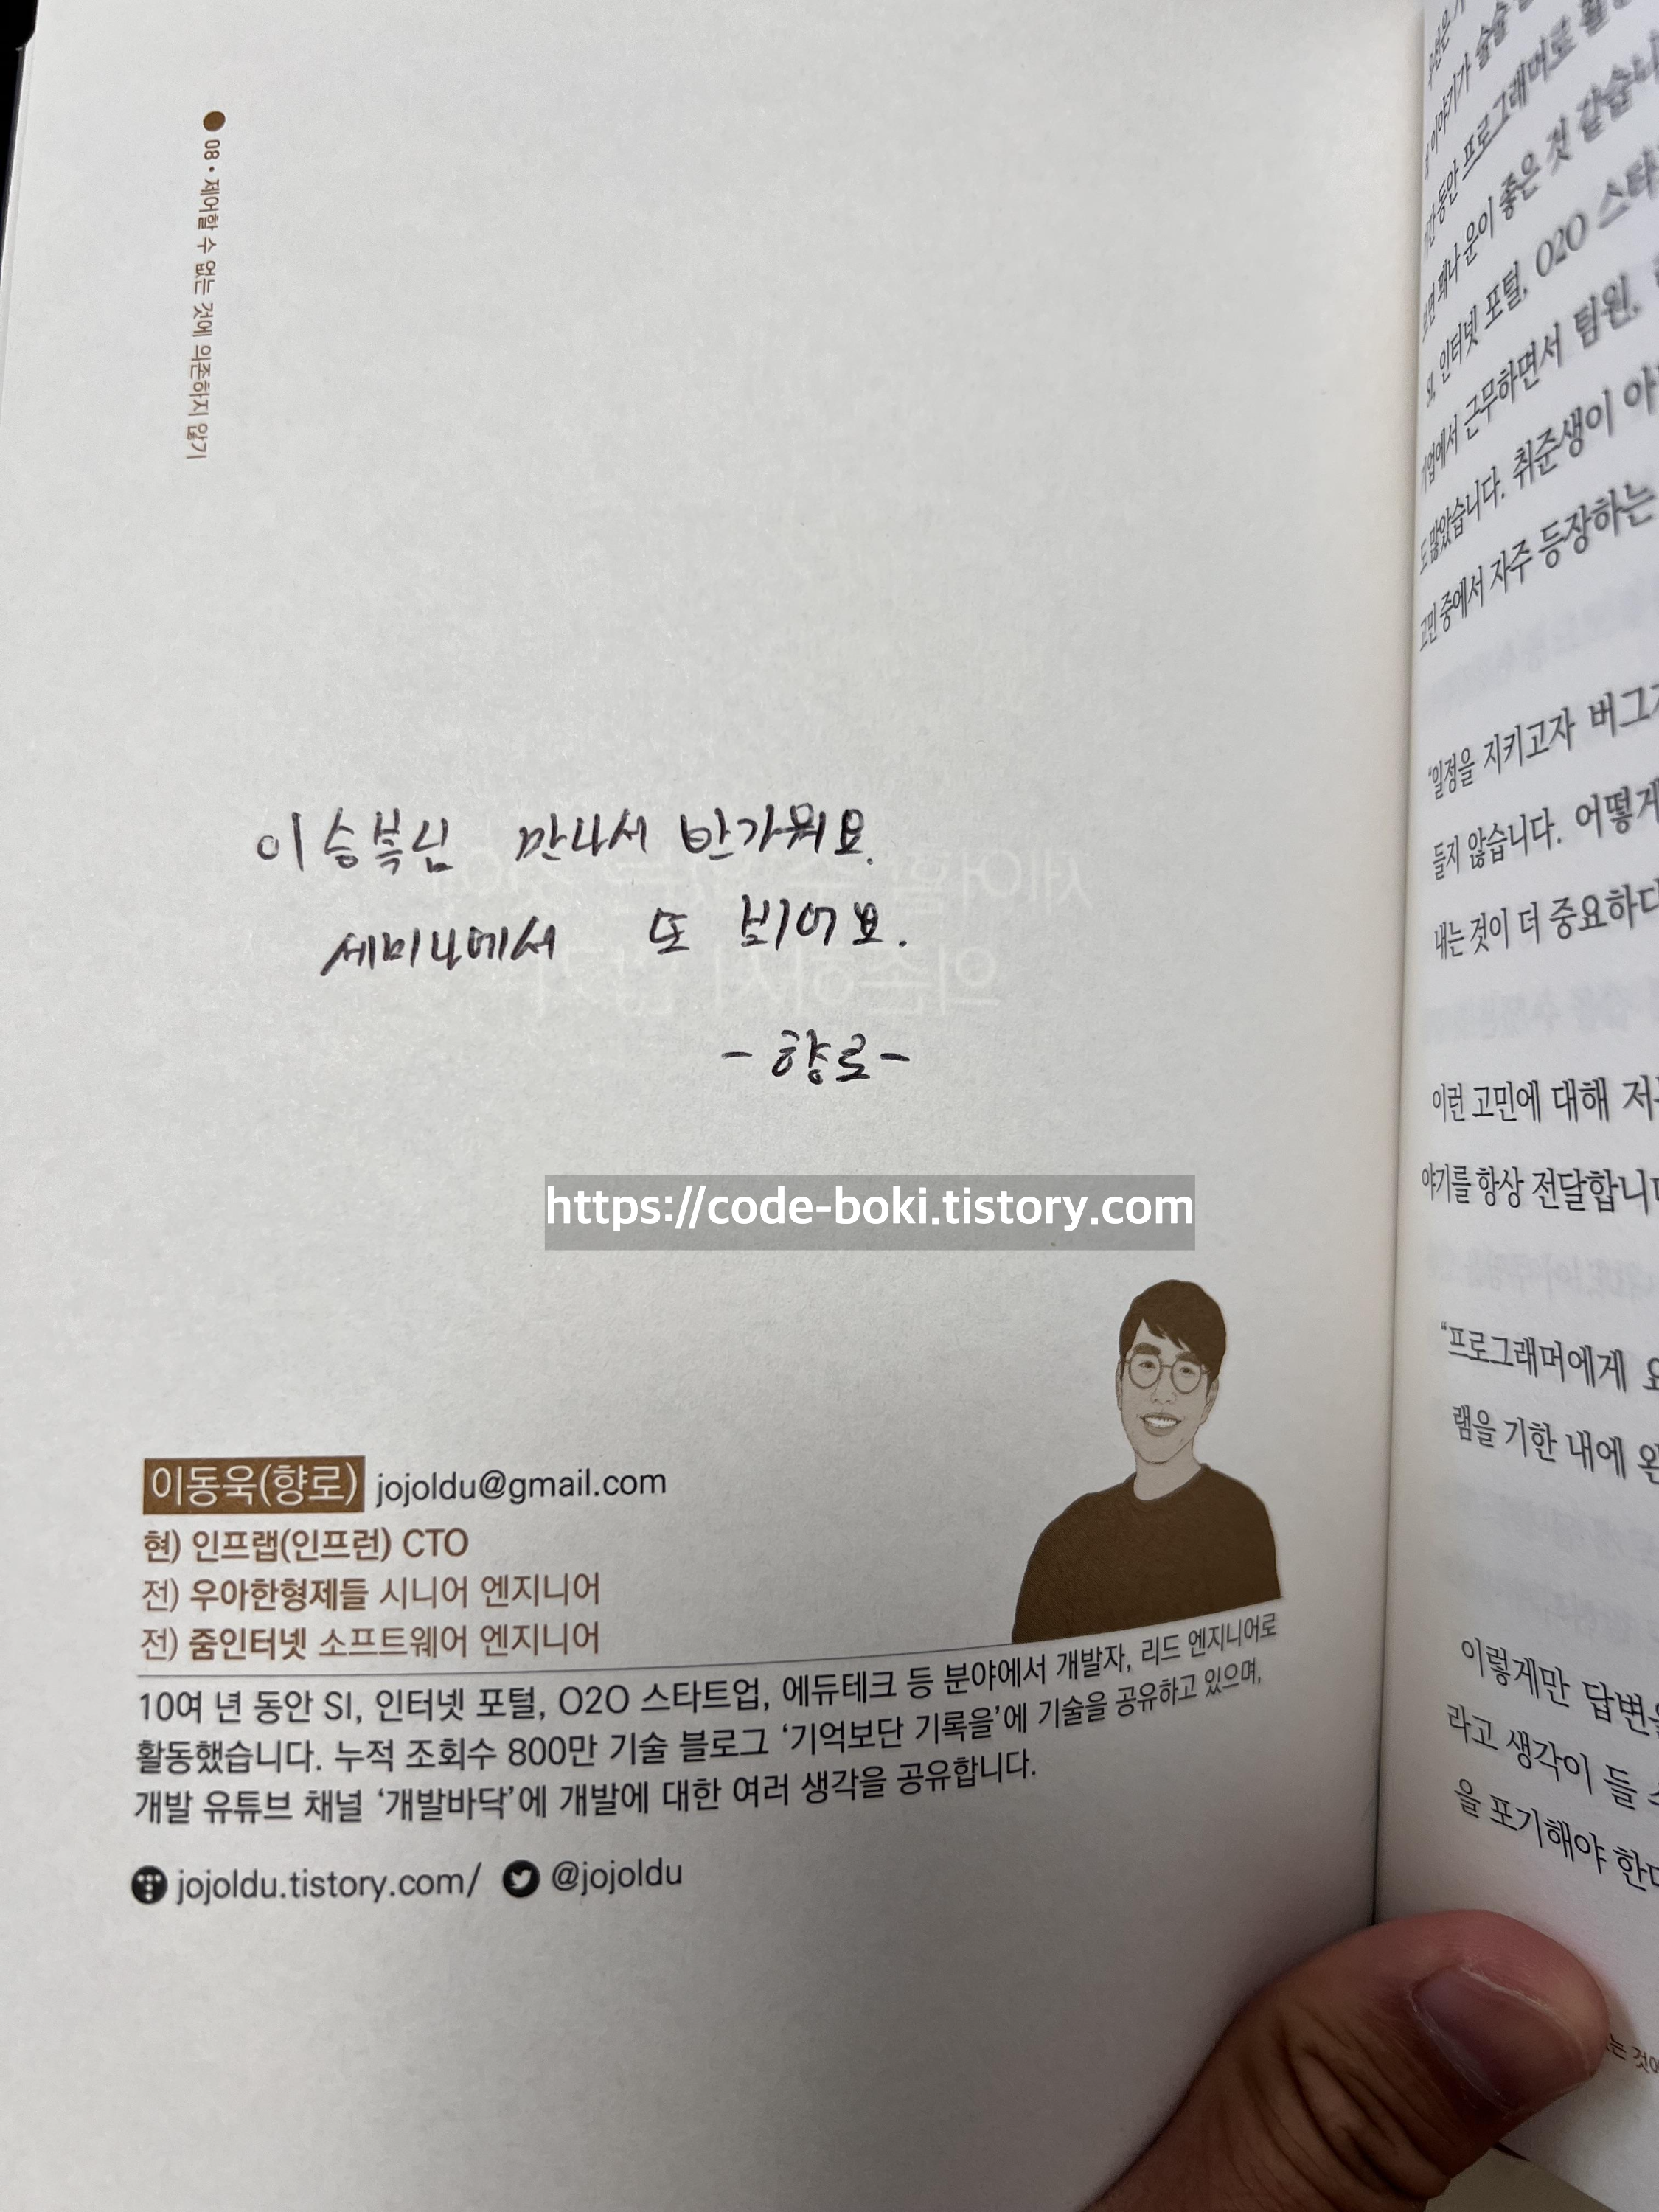 08 • 제어할 수 없는 것에 의존하지 않기
이승복님 만나서 반가워요.
세미나에서 또 봬어요.
- 향로 -
https://code-boki.tistory.com
이동욱(향로) jojoldu@gmail.com
현) 인프랩(인프런) CTO
전) 우아한형제들 시니어 엔지니어
전) 줌인터넷 소프트웨어 엔지니어
10여 년 동안 SI, 인터넷 포털, O2O 스타트업, 에듀테크 등 분야에서 개발자, 리드 엔지니어로
활동했습니다. 누적 조회수 800만 기술 블로그 ‘기억보단 기록을’에 기술을 공유하고 있으며,
개발 유튜브 채널 ‘개발바닥’에 개발에 대한 여러 생각을 공유합니다.
jojoldu.tistory.com/ @jojoldu
이야기가
동안 프로그래머로
꽤나 운이 좋은 것 같습니
SI, 인터넷 포털, O2O
기업에서 근무하면서 팀원,
도 많았습니다. 취준생이
고민 중에서 자주 등장하는
“일정을 지키고자 버그
들지 않습니다. 어떻게
내는 것이 더 중요하다
이런 고민에 대해
야기를 항상 전달합니다
“프로그래머에게
램을 기한 내에
이렇게만 답변을
라고 생각이 들
을 포기해야 한다